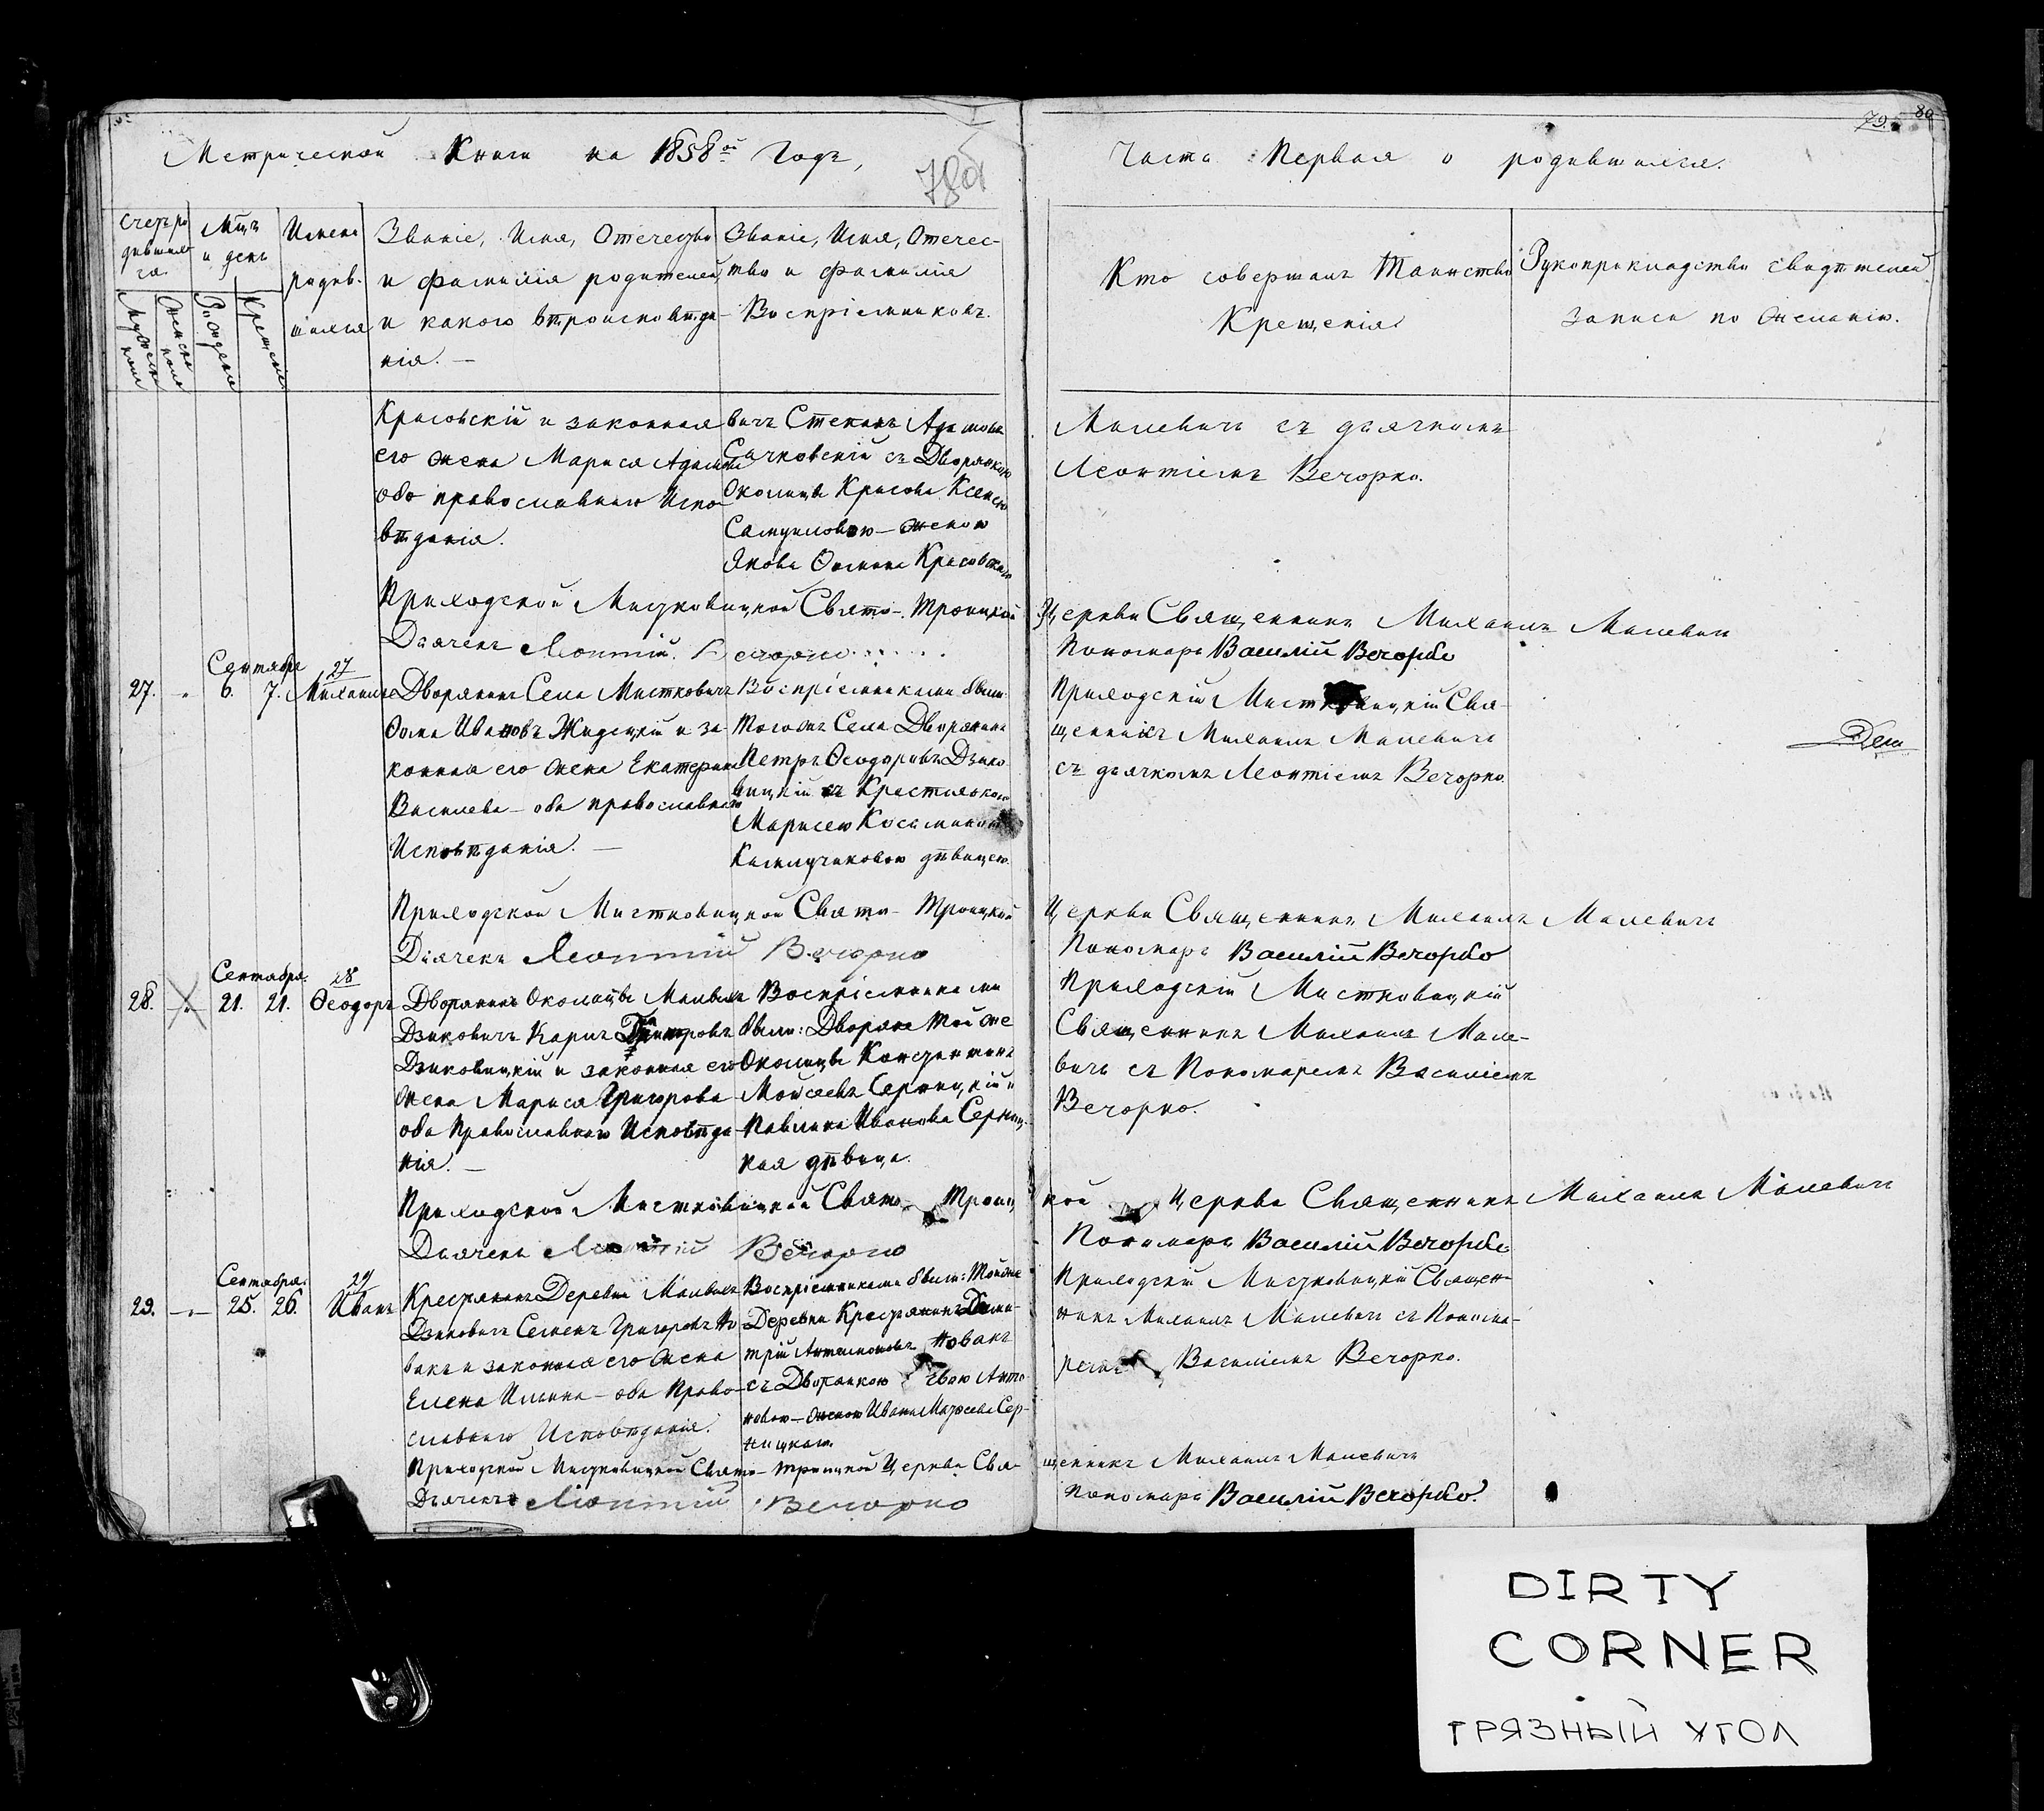 Метрической Книги на 1858ой Годъ,
78об
Часть Первая о родившихся.
79.
80
Счетъ ро
дивших
ся.
Мужеска
пола
Женска
пола
Мѣцъ
и день
Рожденія
Крещенія
Имена
родив-
шихся
Званіе, Имя, Отечество
и фамилія родителей,
и какого вѣроисповѣда-
нія. —
Званіе, Имя, Отечес-
тво и фамилія
Воспріемниковъ.
Кто совершалъ Таинство
Крещенія
Рукоприкладство свидѣтелей
записи по желанію.
Красовскій и законная
его жена Марися Адамова
оба православнаго Испо-
вѣданія.
вичъ Степанъ Адамовъ
Сачковскій съ Дворянкою
Околицы Красова Ксенею
Самуиловою — женою
Якова Красовскаго
Малевичъ съ дьячкомъ
Леонтіемъ Вечорко.
Приходской Мистковицкой Свято-Троицкой Церкви Священникъ Михаилъ Малевичъ
Дьячекъ Леонтій Вечорко
Пономарь Василій Вечорко
Сентября
27. 6. 7.
27
Михаилъ
Дворянинъ Села Мистковичъ
Фома Ивановъ Жидецкій и за-
конная его жена Екатерина
Васильева — оба православнаго
Исповѣданія. —
Воспріемниками были
тогожъ Села Дворянинъ
Петръ Ѳеодоровъ Дзико-
вицкій съ Крестьянкою
Марисею
дѣвицею.
Приходскій Мистковицкій Свя-
щенникъ Михаилъ Малевичъ
съ дьячкомъ Леонтіемъ Вечорко
Приходской Мистковицкой Свято-Троицкой Церкви Священникъ Михаилъ Малевичъ
Дьячекъ Леонтій Вечорко
Пономарь Василій Вечорко
Сентября.
28. 21. 21.
28
Ѳеодоръ
Дворянинъ Околицы Малыхъ
Дзиковичъ Карпъ
Дзиковицкій и законная его
жена Марися Григорова
оба Православнаго Исповѣда-
нія. —
Воспріемниками
были: Дворяне той же
Околицы Константинъ
Мойсеевъ Серницкій и
Павлина Иванова Серниц-
кая дѣвица.
Приходскій Мистковицкій
Священникъ Михаилъ Мале-
вичъ съ Пономаремъ Василіемъ
Вечорко.
Приходской Мистковицкой Свято-Троицкой Церкви Священникъ Михаилъ Малевичъ
Дьячекъ Леонтій Вечорко
Пономарь Василій Вечорко
Сентября.
29. 25. 26.
29
Иванъ
Крестьянинъ Деревни Малыхъ
Дзиковичъ Семенъ Григоровъ Но
вакъ и законная его жена
Елена Ильина — оба Право-
славнаго Исповѣданія.
Воспріемниками были: Тойже
Деревни Крестьянинъ Дими-
трій Новакъ
съ Дворянкою Анто-
новою — женою Ивана Серницкаго.
Приходскій Мистковицкій Священ-
никъ Михаилъ Малевичъ съ Понома-
ремъ Василіемъ Вечорко.
Приходской Мистковицкой Свято-Троицкой Церкви Священникъ Михаилъ Малевичъ
Дьячекъ Леонтій Вечорко
Пономарь Василій Вечорко.
DIRTY
CORNER
ГРЯЗНЫЙ УГОЛ